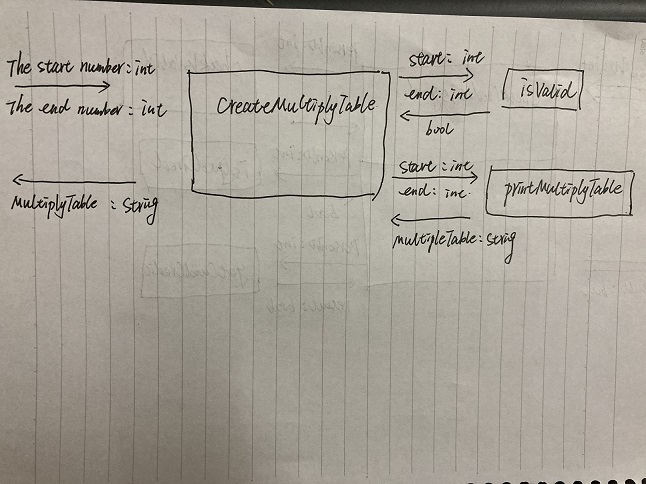 The start number: int
The end number: int
MultiplyTable : String
CreateMultiplyTable
start: int
end: int
bool
isValid
start: int
end: int.
multipleTable: String
printMultiplyTable